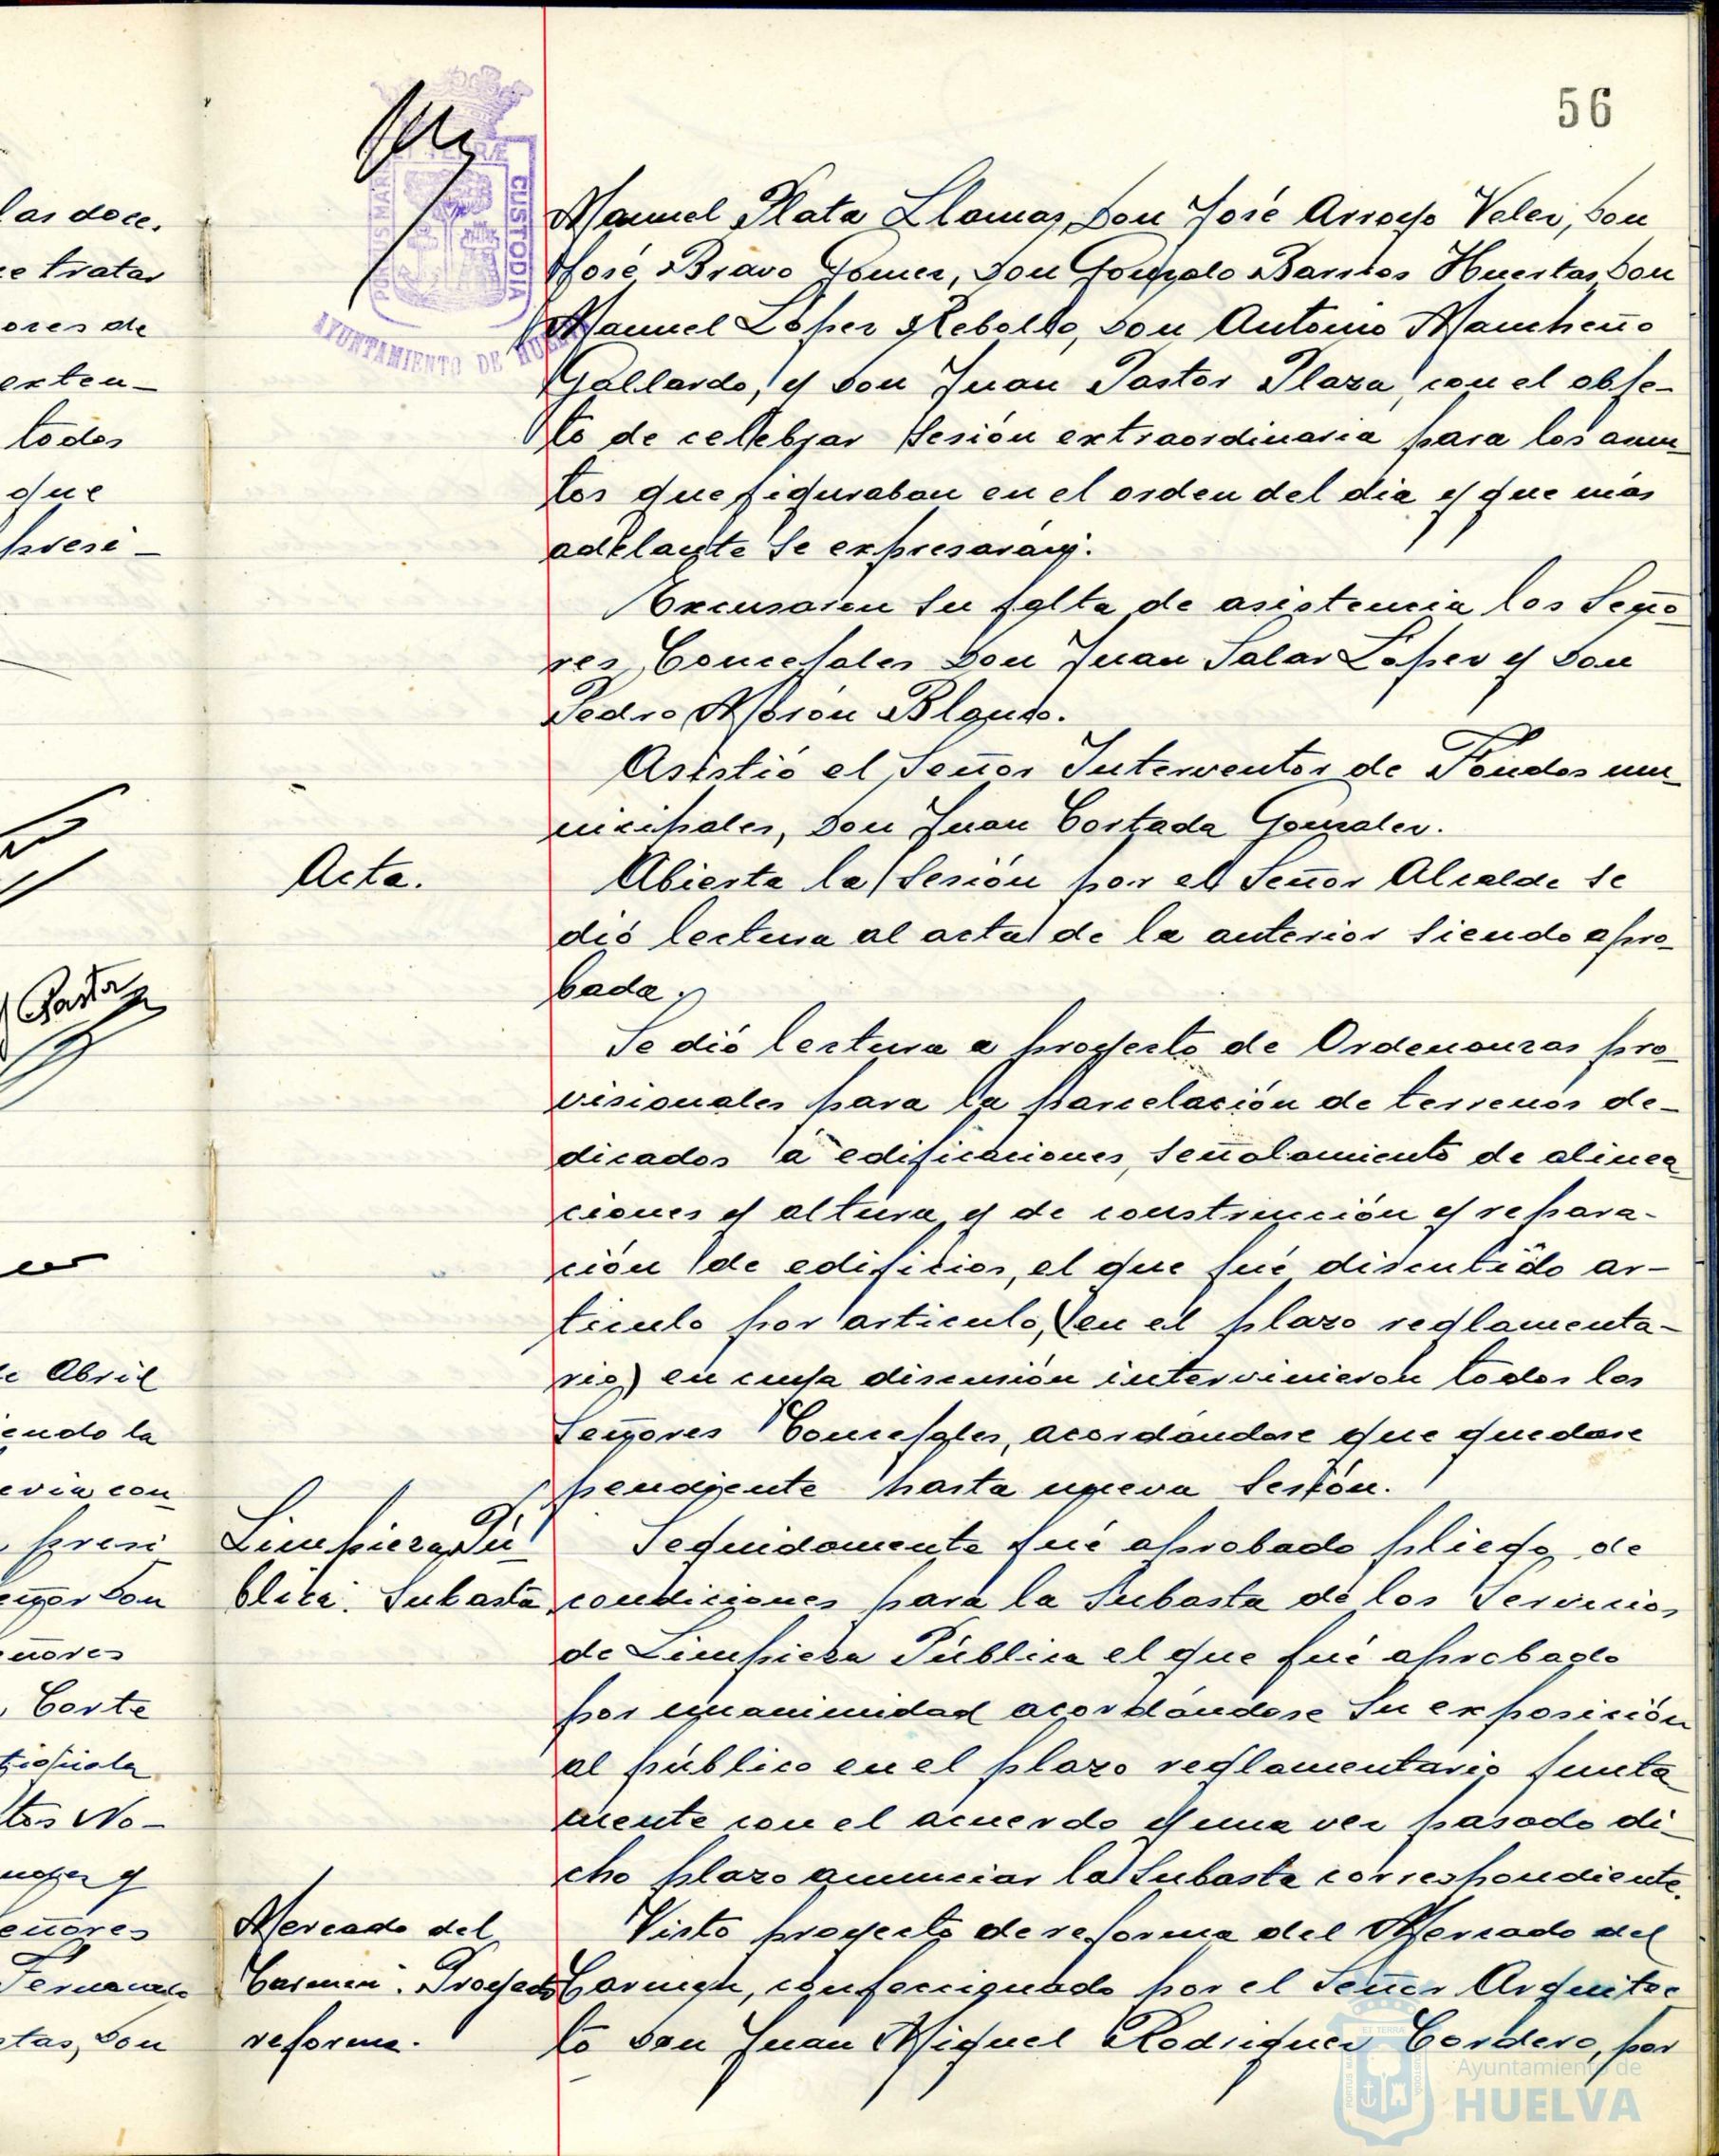 56
las doce.
e tratar
ores de
exten-
todos
que
presi-
Pastor
de Abril
endo la
evia con
presi
señor Don
eñores
Corte
tos No-
y
eñores
Fernando
tas, Don
PORTUS MARIS ET TERRÆ CUSTODIA
AYUNTAMIENTO DE HUELVA
Manuel Plata Llamas, Don José Arroyo Velez, Don
José Bravo Gomez, Don Gonzalo Barrios Huertas, Don
Manuel López Rebollo, Don Antonio Mancheño
Gallardo, y Don Juan Pastor Plaza, con el obje-
to de cellebrar Sesión extraordinaria para los asun
tos que figuraban en el orden del dia y que más
adelante se expresarán.
Excusaron su falta de asistencia los Seño-
res Concejales Don Juan Salas López y Don
Pedro Morón Blanco.
Asistió el Señor Interventor de Fondos mu-
nicipales, Don Juan Cortada Gonzalez.
Acta.
Abierta la Sesión por el Señor Alcalde se
dió lectura al acta de la anterior siendo apro-
bada.
Se dió lectura a proyecto de Ordenanzas pro-
visionales para la parcelación de terrenos de-
dicados á edificaciones, señalamiento de alinea
ciones y altura, y de construcción y repara-
ción de edificios, el que fué discutido ar-
ticulo por articulo, (en el plazo reglamenta-
rio) en cuya discusión intervinieron todos los
Señores Concejales, acordándose que quedase
pendiente hasta nueva Sesión.
Limpieza Pú-
blica. Subasta
Seguidamente fué aprobado pliego de
condiciones para la Subasta de los Servicios
de Limpieza Pública el que fué aprobado
por unanimidad acordándose su exposición
al público en el plazo reglamentario junta
mente con el acuerdo y una vez pasado di-
cho plazo anunciar la Subasta correspondiente.
Mercado del
Carmen. Proyecto
reforma.
Visto proyecto de reforma del Mercado del
Carmen, confeccionado por el Señor Arquitec
to Don Juan Miguel Rodriguez Cordero, por
Ayuntamiento de
HUELVA